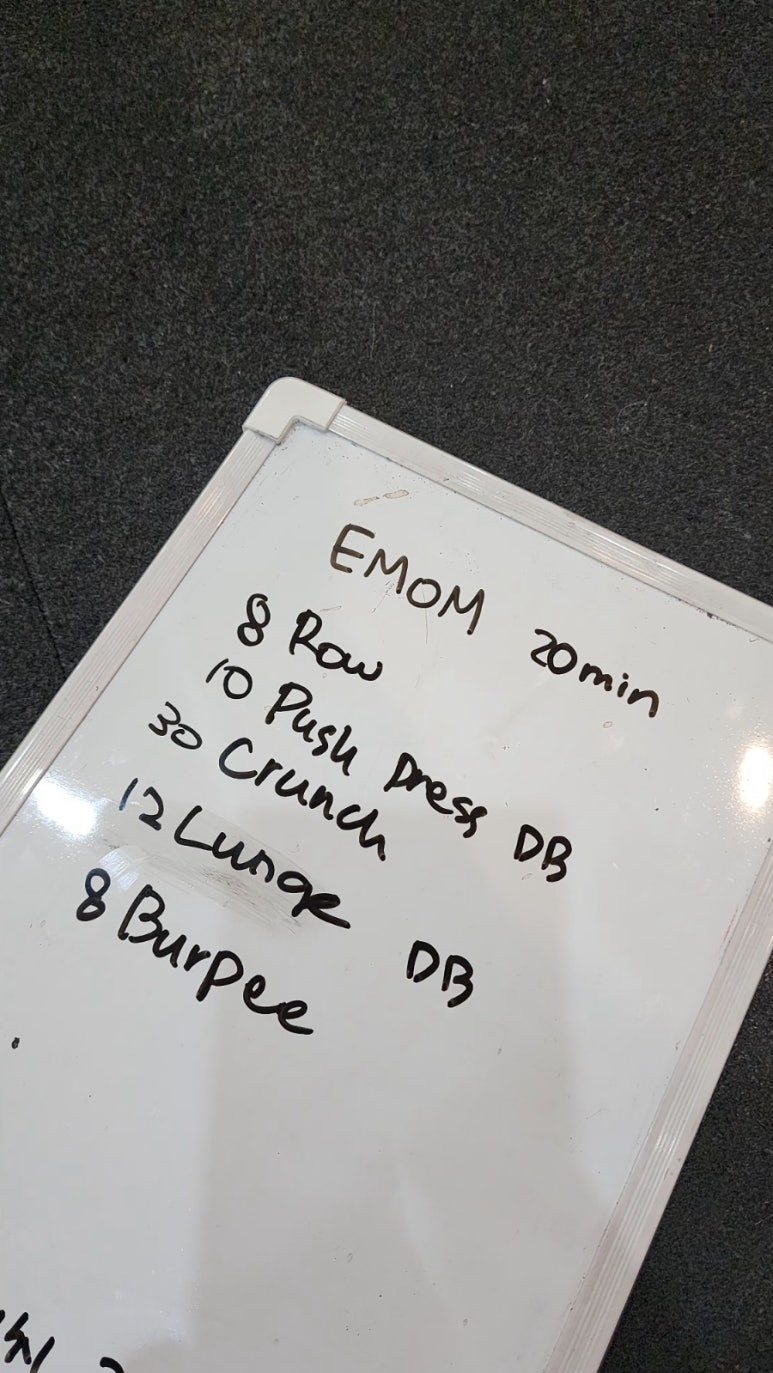 EMOM 20min
8 Row
10 Push press DB
30 Crunch
12 Lunge DB
8 Burpee